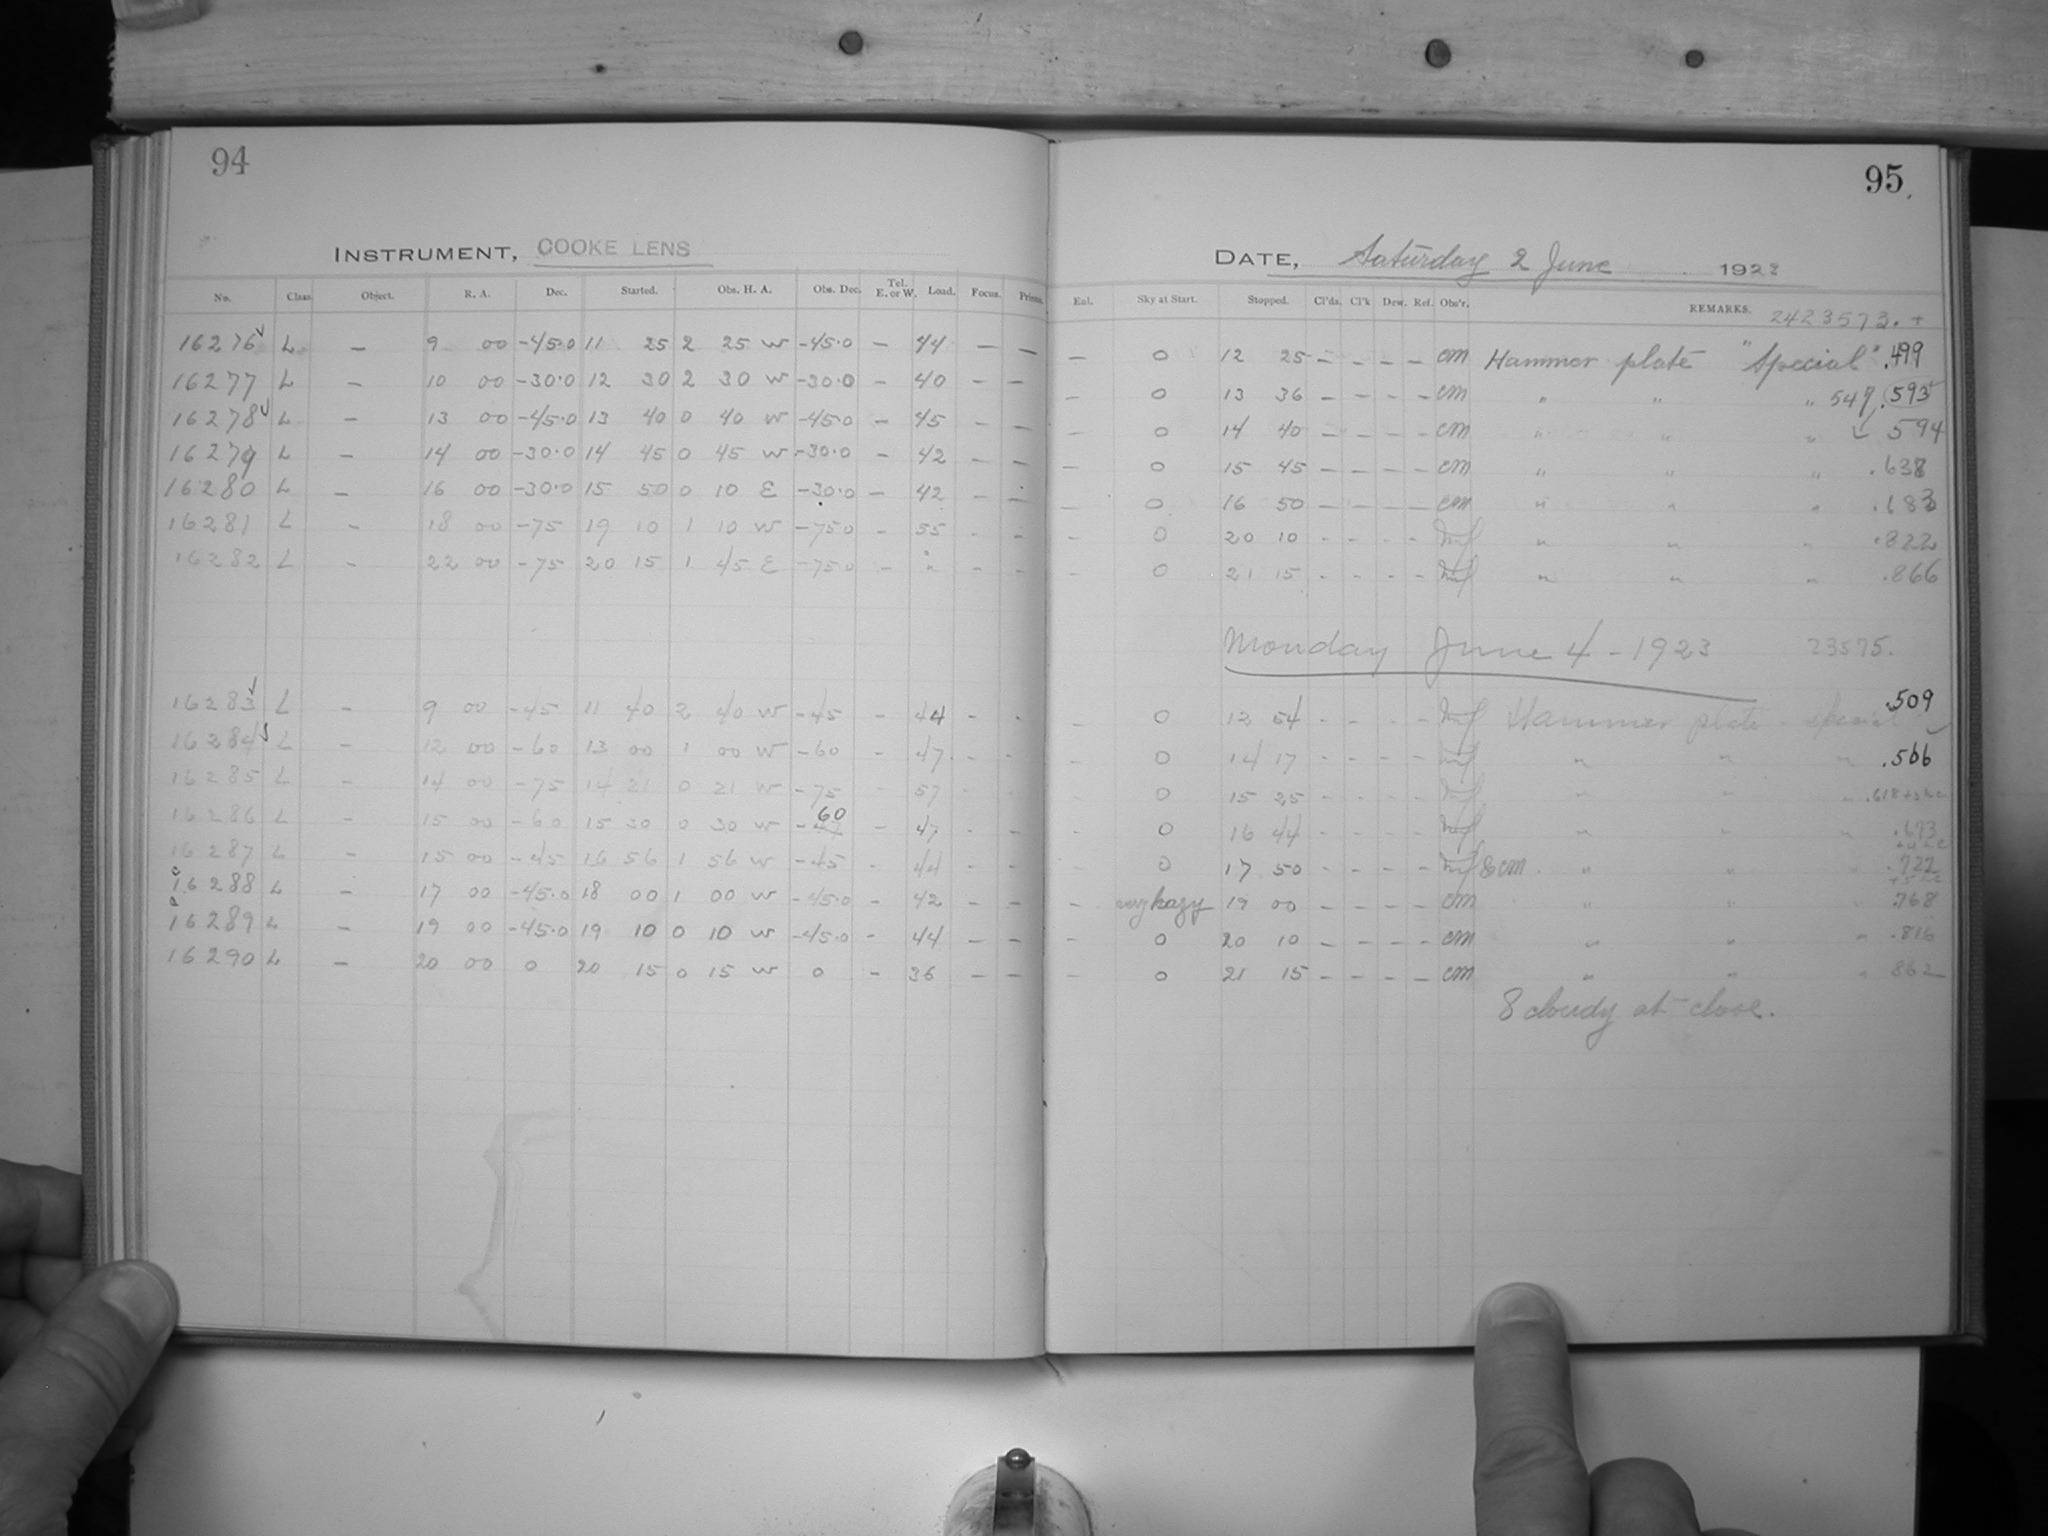 94
INSTRUMENT, COOKE LENS
No. Class Object. R. A. Dec. Started. Obs. H. A. Obs. Dec. Tel. E. or W. Load. Focus.
16276 L — 9 00 -45.0 11 25 2 25 W -45.0 — 44 — —
16277 L — 10 00 -30.0 12 30 2 30 W -30.0 — 40 — —
16278 L — 13 00 -45.0 13 40 0 40 W -45.0 — 45 — —
16279 L — 14 00 -30.0 14 45 0 45 W -30.0 — 42 — —
16280 L — 16 00 -30.0 15 50 0 10 E -30.0 — 42 — —
16281 L — 18 00 -75 19 10 1 10 W -75.0 — 55 - -
16282 L — 22 00 -75 20 15 1 45 E -75.0 — " - -
16283 L — 9 00 -45 11 40 2 40 W -45 - 44 - -
16284 L — 12 00 -60 13 00 1 00 W -60 - 47 - -
16285 L — 14 00 -75 14 21 0 21 W -75 - 57 - -
16286 L — 15 00 -60 15 30 0 30 W -60 - 47 - -
16287 L — 15 00 -45 16 56 1 56 W -45 - 44 - -
16288 L — 17 00 -45.0 18 00 1 00 W -45.0 - 42 — —
16289 L — 19 00 -45.0 19 10 0 10 W -45.0 - 44 — —
16290 L — 20 00 0 20 15 0 15 W 0 - 36 — —
95
DATE, Saturday 2 June 1923
Eal. Sky at Start. Stopped. Cl'ds. Cl'k Dew. Ref. Obs'r. REMARKS. 2423573. +
— 0 12 25 — — — — CM Hammer plate "Special" .499
— 0 13 36 — — — — CM " " " 547 .593
— 0 14 40 — — — — CM " " " 594
— 0 15 45 — — — — CM " " " .638
— 0 16 50 — — — — CM " " " .683
— 0 20 10 - - - - " " " .822
— 0 21 15 - - - - " " " .866
Monday June 4 - 1923 23575.
- 0 12 54 - - - - Hammer plate - special .509
- 0 14 17 - - - - " " " .566
- 0 15 25 - - - - " " " .618
- 0 16 44 - - - - " " " .673
- 0 17 50 - - - - & CM " " .722
- very hazy 19 00 — — — — CM " " " .768
- 0 20 10 — — — — CM " " " .816
- 0 21 15 — — — — CM " " " 862
8 cloudy at close.